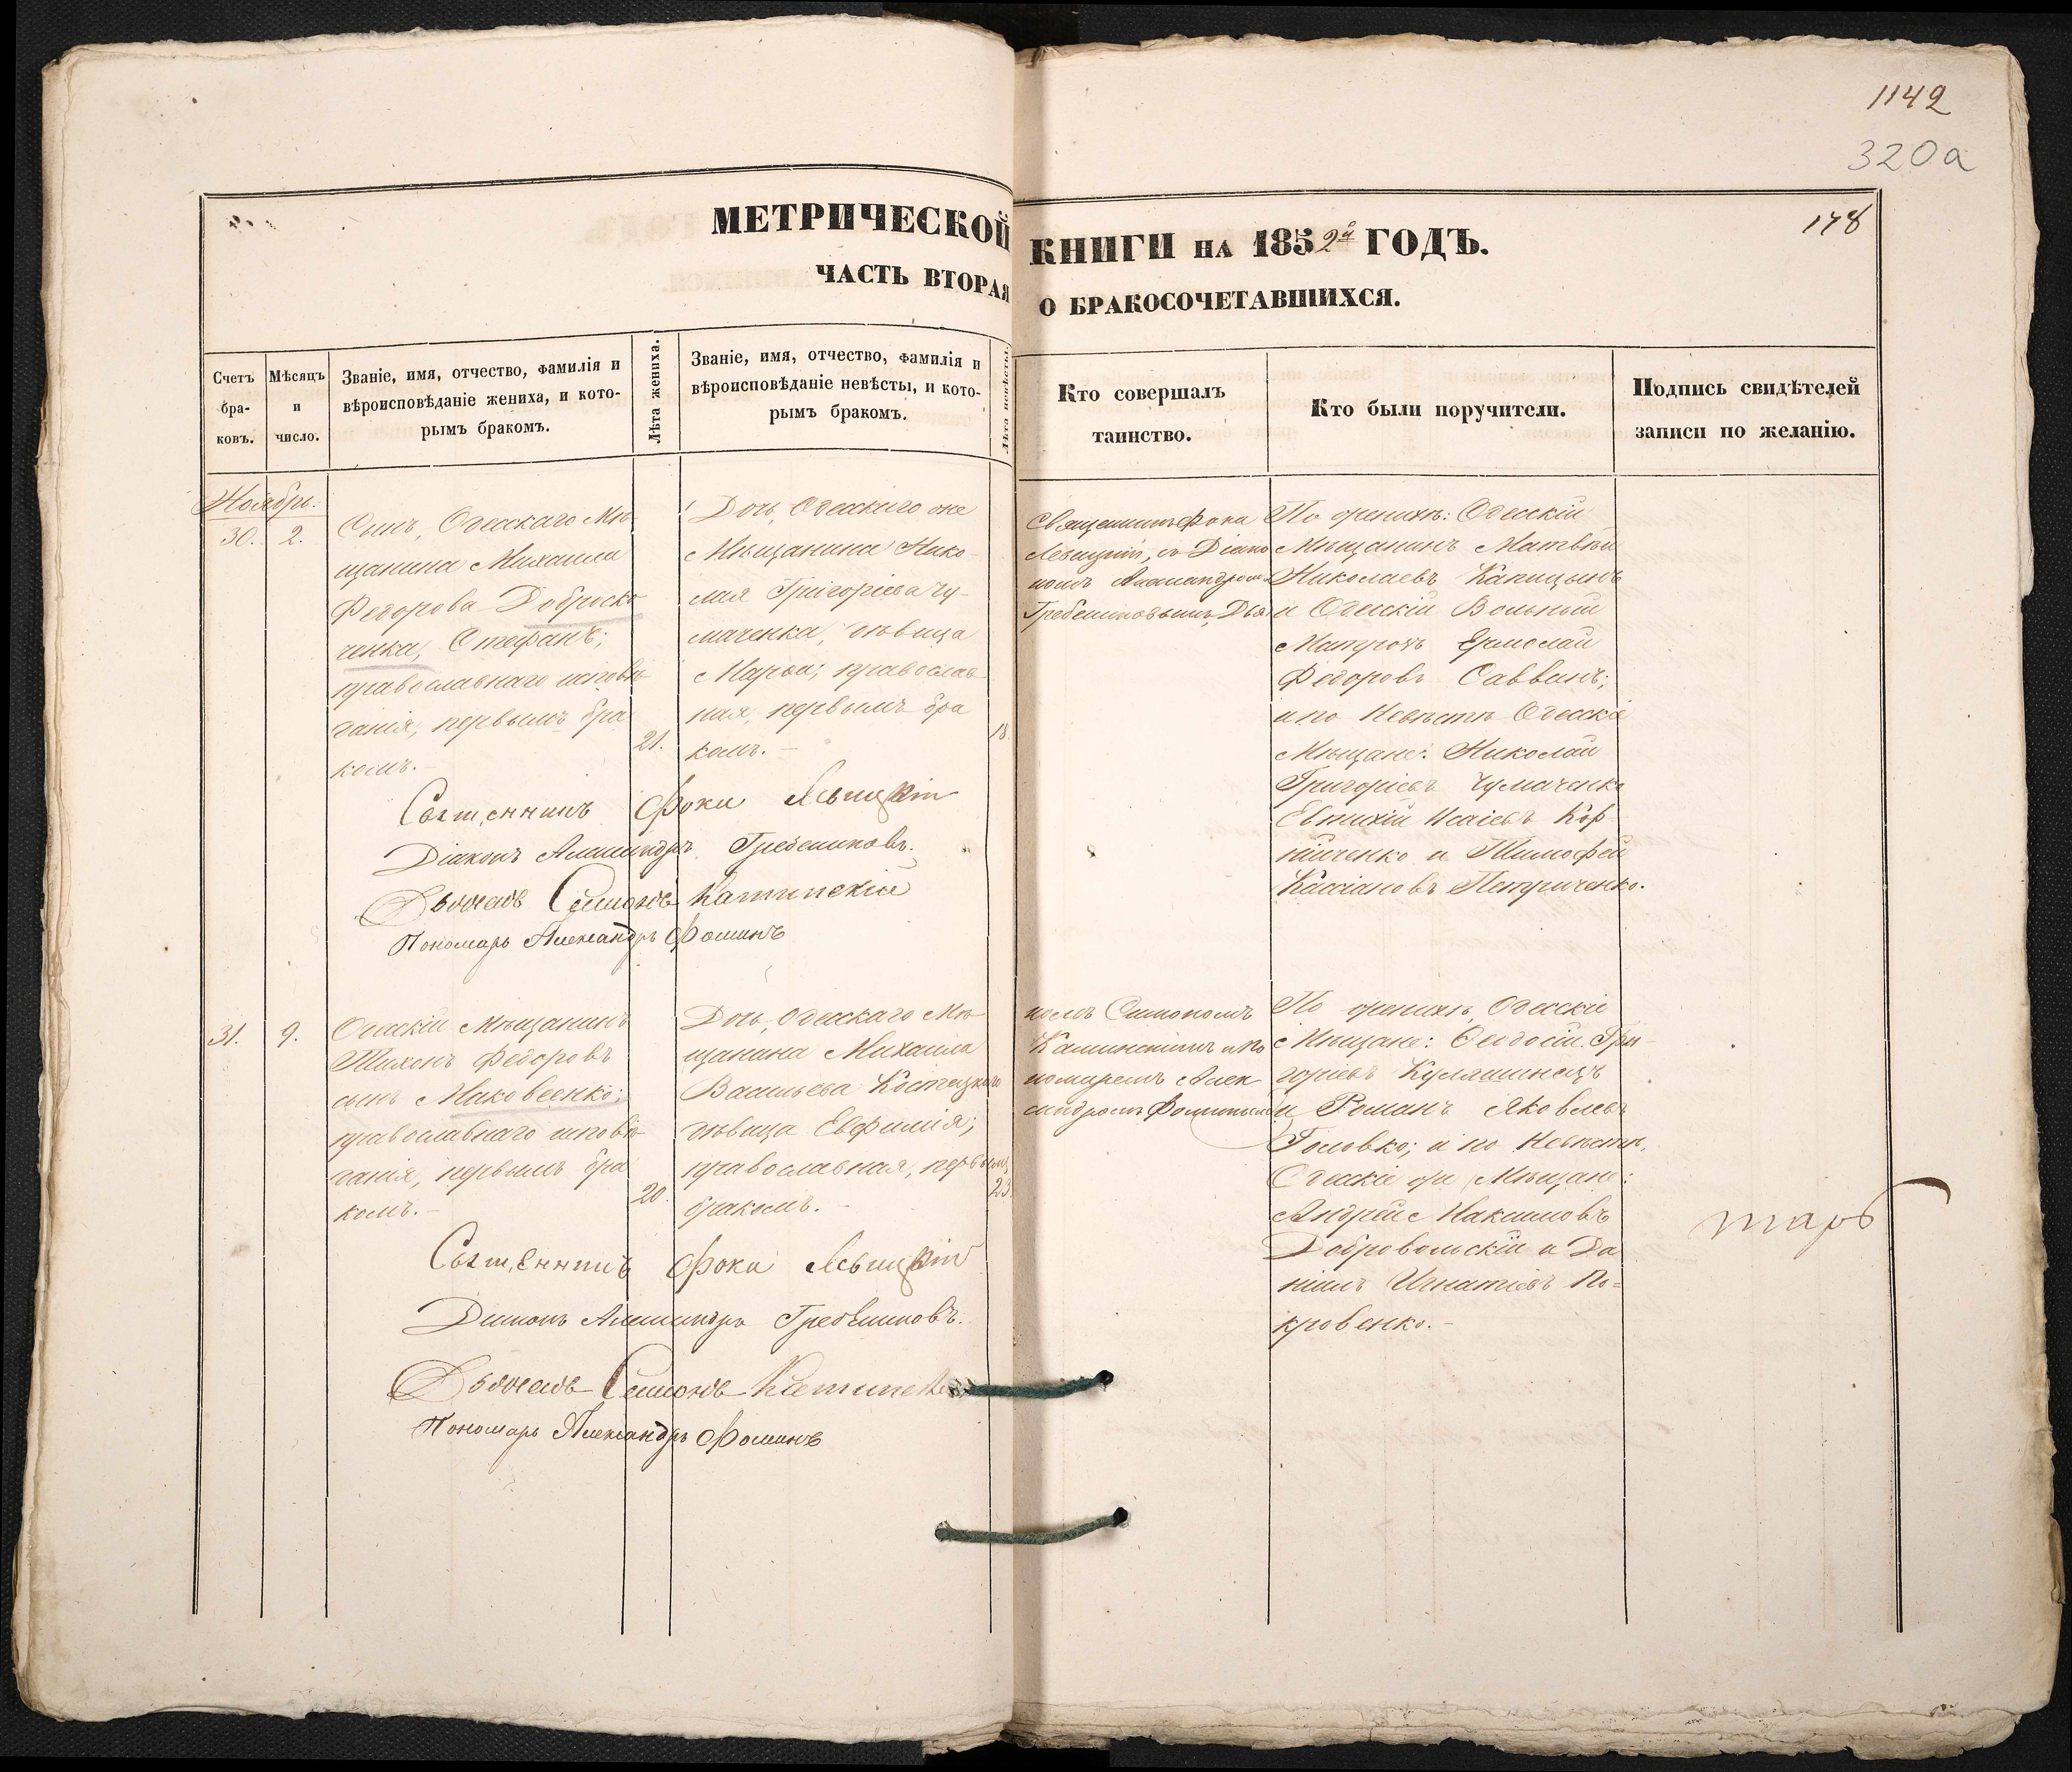 1142
320а
178
МЕТРИЧЕСКОЙ КНИГИ НА 1852й ГОДЪ.
ЧАСТЬ ВТОРАЯ О БРАКОСОЧЕТАВШИХСЯ.
Счетъ
бра-
ковъ.
Мѣсяцъ
и
число.
Званіе, имя, отчество, фамилія и
вѣроисповѣданіе жениха, и кото-
рымъ бракомъ.
Лѣта жениха.
Званіе, имя, отчество, фамилія и
вѣроисповѣданіе невѣсты, и кото-
рымъ бракомъ.
Лѣта невѣсты.
Кто совершалъ
таинство.
Кто были поручители.
Подпись свидѣтелей
записи по желанію.
Ноябрь.
30. 2.
Сынъ, Одесскаго Мѣ
щанина Михаила
Федорова Доброско
ченка, Стефанъ;
православнаго исповѣ
данія, первымъ бра
комъ.-
21.
Дочь, Одесскаго же
Мѣщанина Нико-
лая Григоріева Чу-
маченка, дѣвица
Марѳа; православ
ная, первымъ бра
комъ.-
18.
Священникъ Фока
Левицкій, съ Діако
номъ Александромъ
Гребенниковымъ, Дья
По женихѣ: Одесскій
Мѣщанинъ Матвѣй
Николаевъ Капицынъ
и Одесскій Вольный
Матрозъ Ермолай
Федоровъ Саввинъ;
и по Невѣстѣ Одесскіе
Мѣщане: Николай
Григоріевъ Чумаченко
Евтихій Исаіевъ Кор-
нійченко и Тимофей
Кассіановъ Петриченко.
Священникъ Фока Левицкій
Діаконъ Александръ Гребенниковъ.
Дьячекъ Симонъ Каминскій
Пономарь Александръ Фоминъ
31. 9.
Одесскій Мѣщанинъ
Тихонъ Федоровъ
сынъ Маковеенко;
православнаго исповѣ-
данія, первымъ бра
комъ.-
20.
Дочь, Одесскаго Мѣ-
щанина Михаила
Васильева Костецкаго
дѣвица Евфимія;
православная, первымъ
бракомъ.-
23.
комъ Симономъ
Каминскимъ и По
номаремъ Алек
сандромъ Фоминымъ
По женихѣ, Одесскіе
Мѣщане: Феодосій Гри-
горіевъ Куляшинецъ
и Романъ Яковлевъ
Головко; и по Невѣстѣ,
Одесскіе же Мѣщане:
Андрей Максимовъ
Добровольскій и Да
ніилъ Игнатіевъ По-
кровенко.-
Священникъ Фока Левицкій
Діаконъ Александръ Гребенниковъ.
Дьячекъ Симонъ Каминскій
Пономарь Александръ Фоминъ
тарь